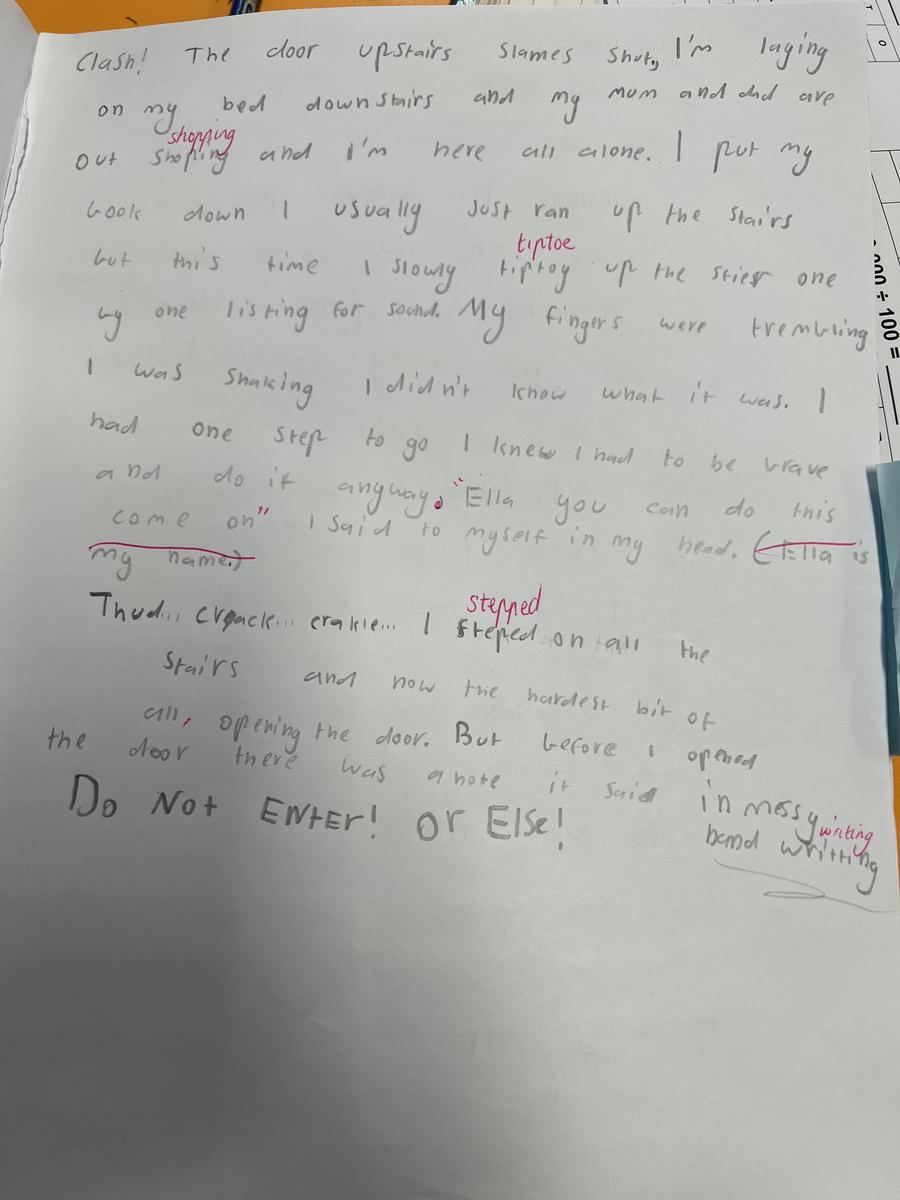 Clash! The door upstairs slames shut, I'm laying
on my bed downstairs and my mum and dad are
shopping
out shoping and I'm here all alone. I put my
book down I usually just ran up the stairs
tiptoe
but this time I slowly tiptoy up the stier one
by one listing for sound. My fingers were trembling
I was shaking I didn't know what it was. I
had one step to go I knew I had to be brave
and do it anyway. "Ella you can do this
come on" I said to myself in my head. (Ella is
my name.)
stepped
Thud... crack... crakle... I steped on all the
stairs and now the hardest bit of
all, opening the door. But before I opened
the door there was a note it said in messy
writing
hand writting
Do Not ENtER! or Else!
000 ÷ 100 =